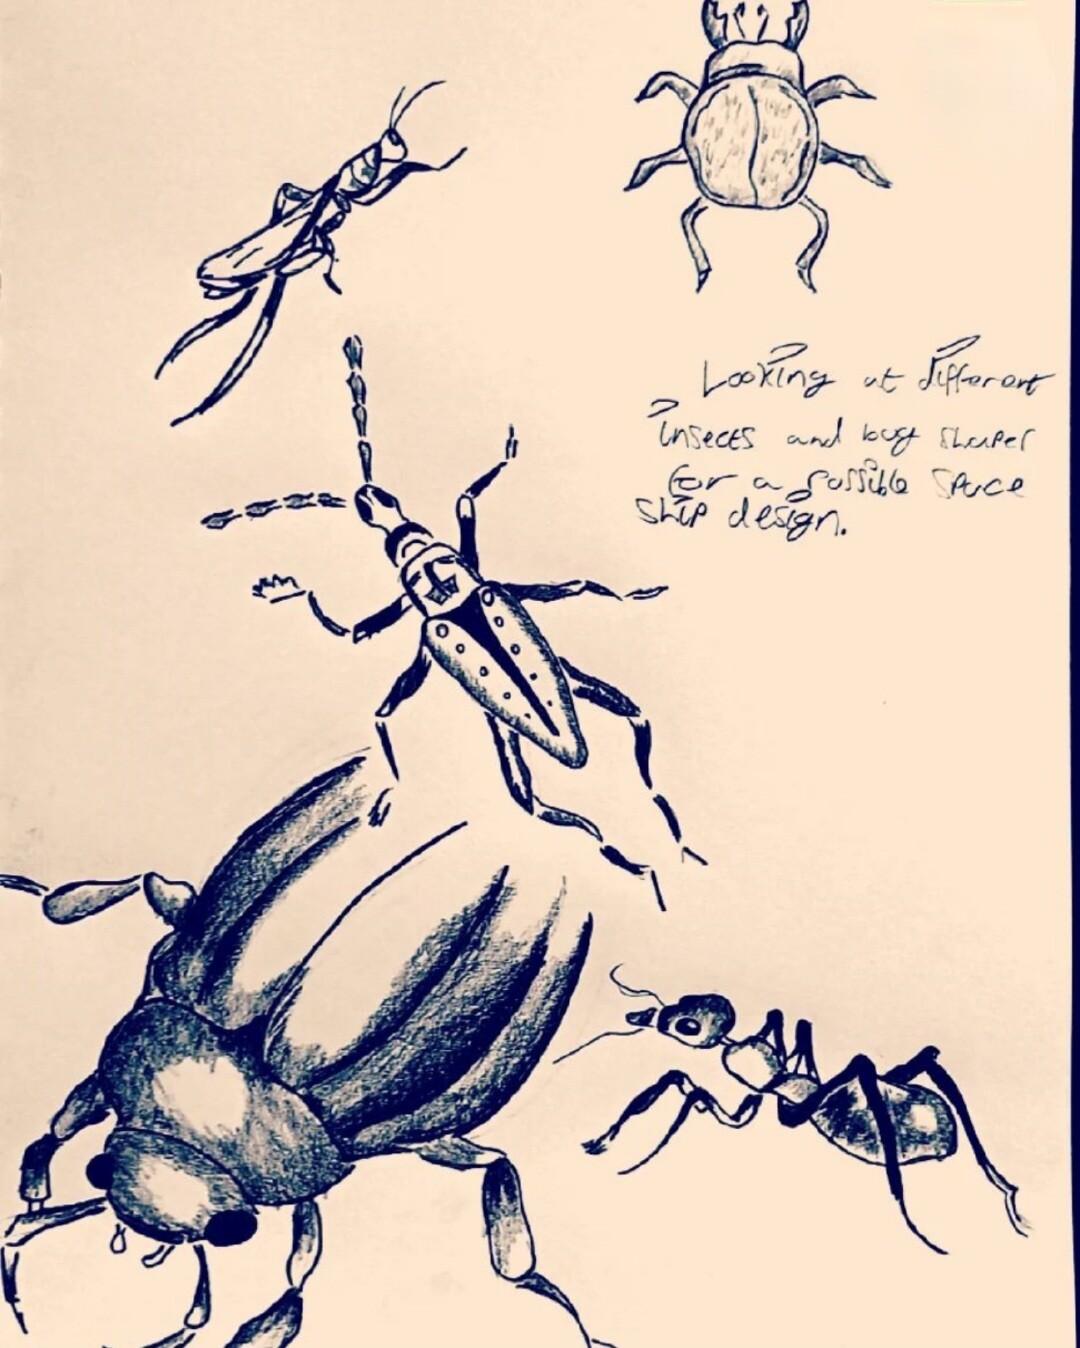 Looking at different
insects and bug shapes
for a possible space
ship design.